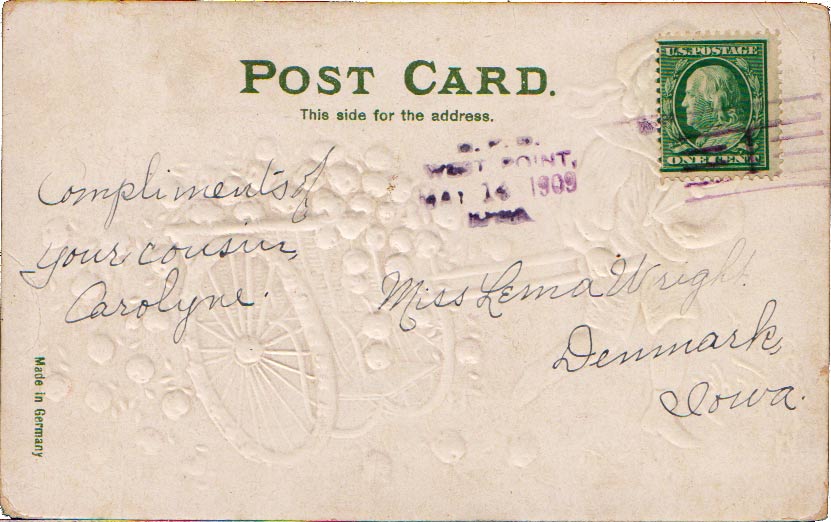 POST CARD.
This side for the address.
U.S. POSTAGE
ONE CENT
WEST POINT,
14 1909
Compliments of
your cousin,
Carolyne.
Miss Lema Wright.
Denmark,
Iowa.
Made in Germany.